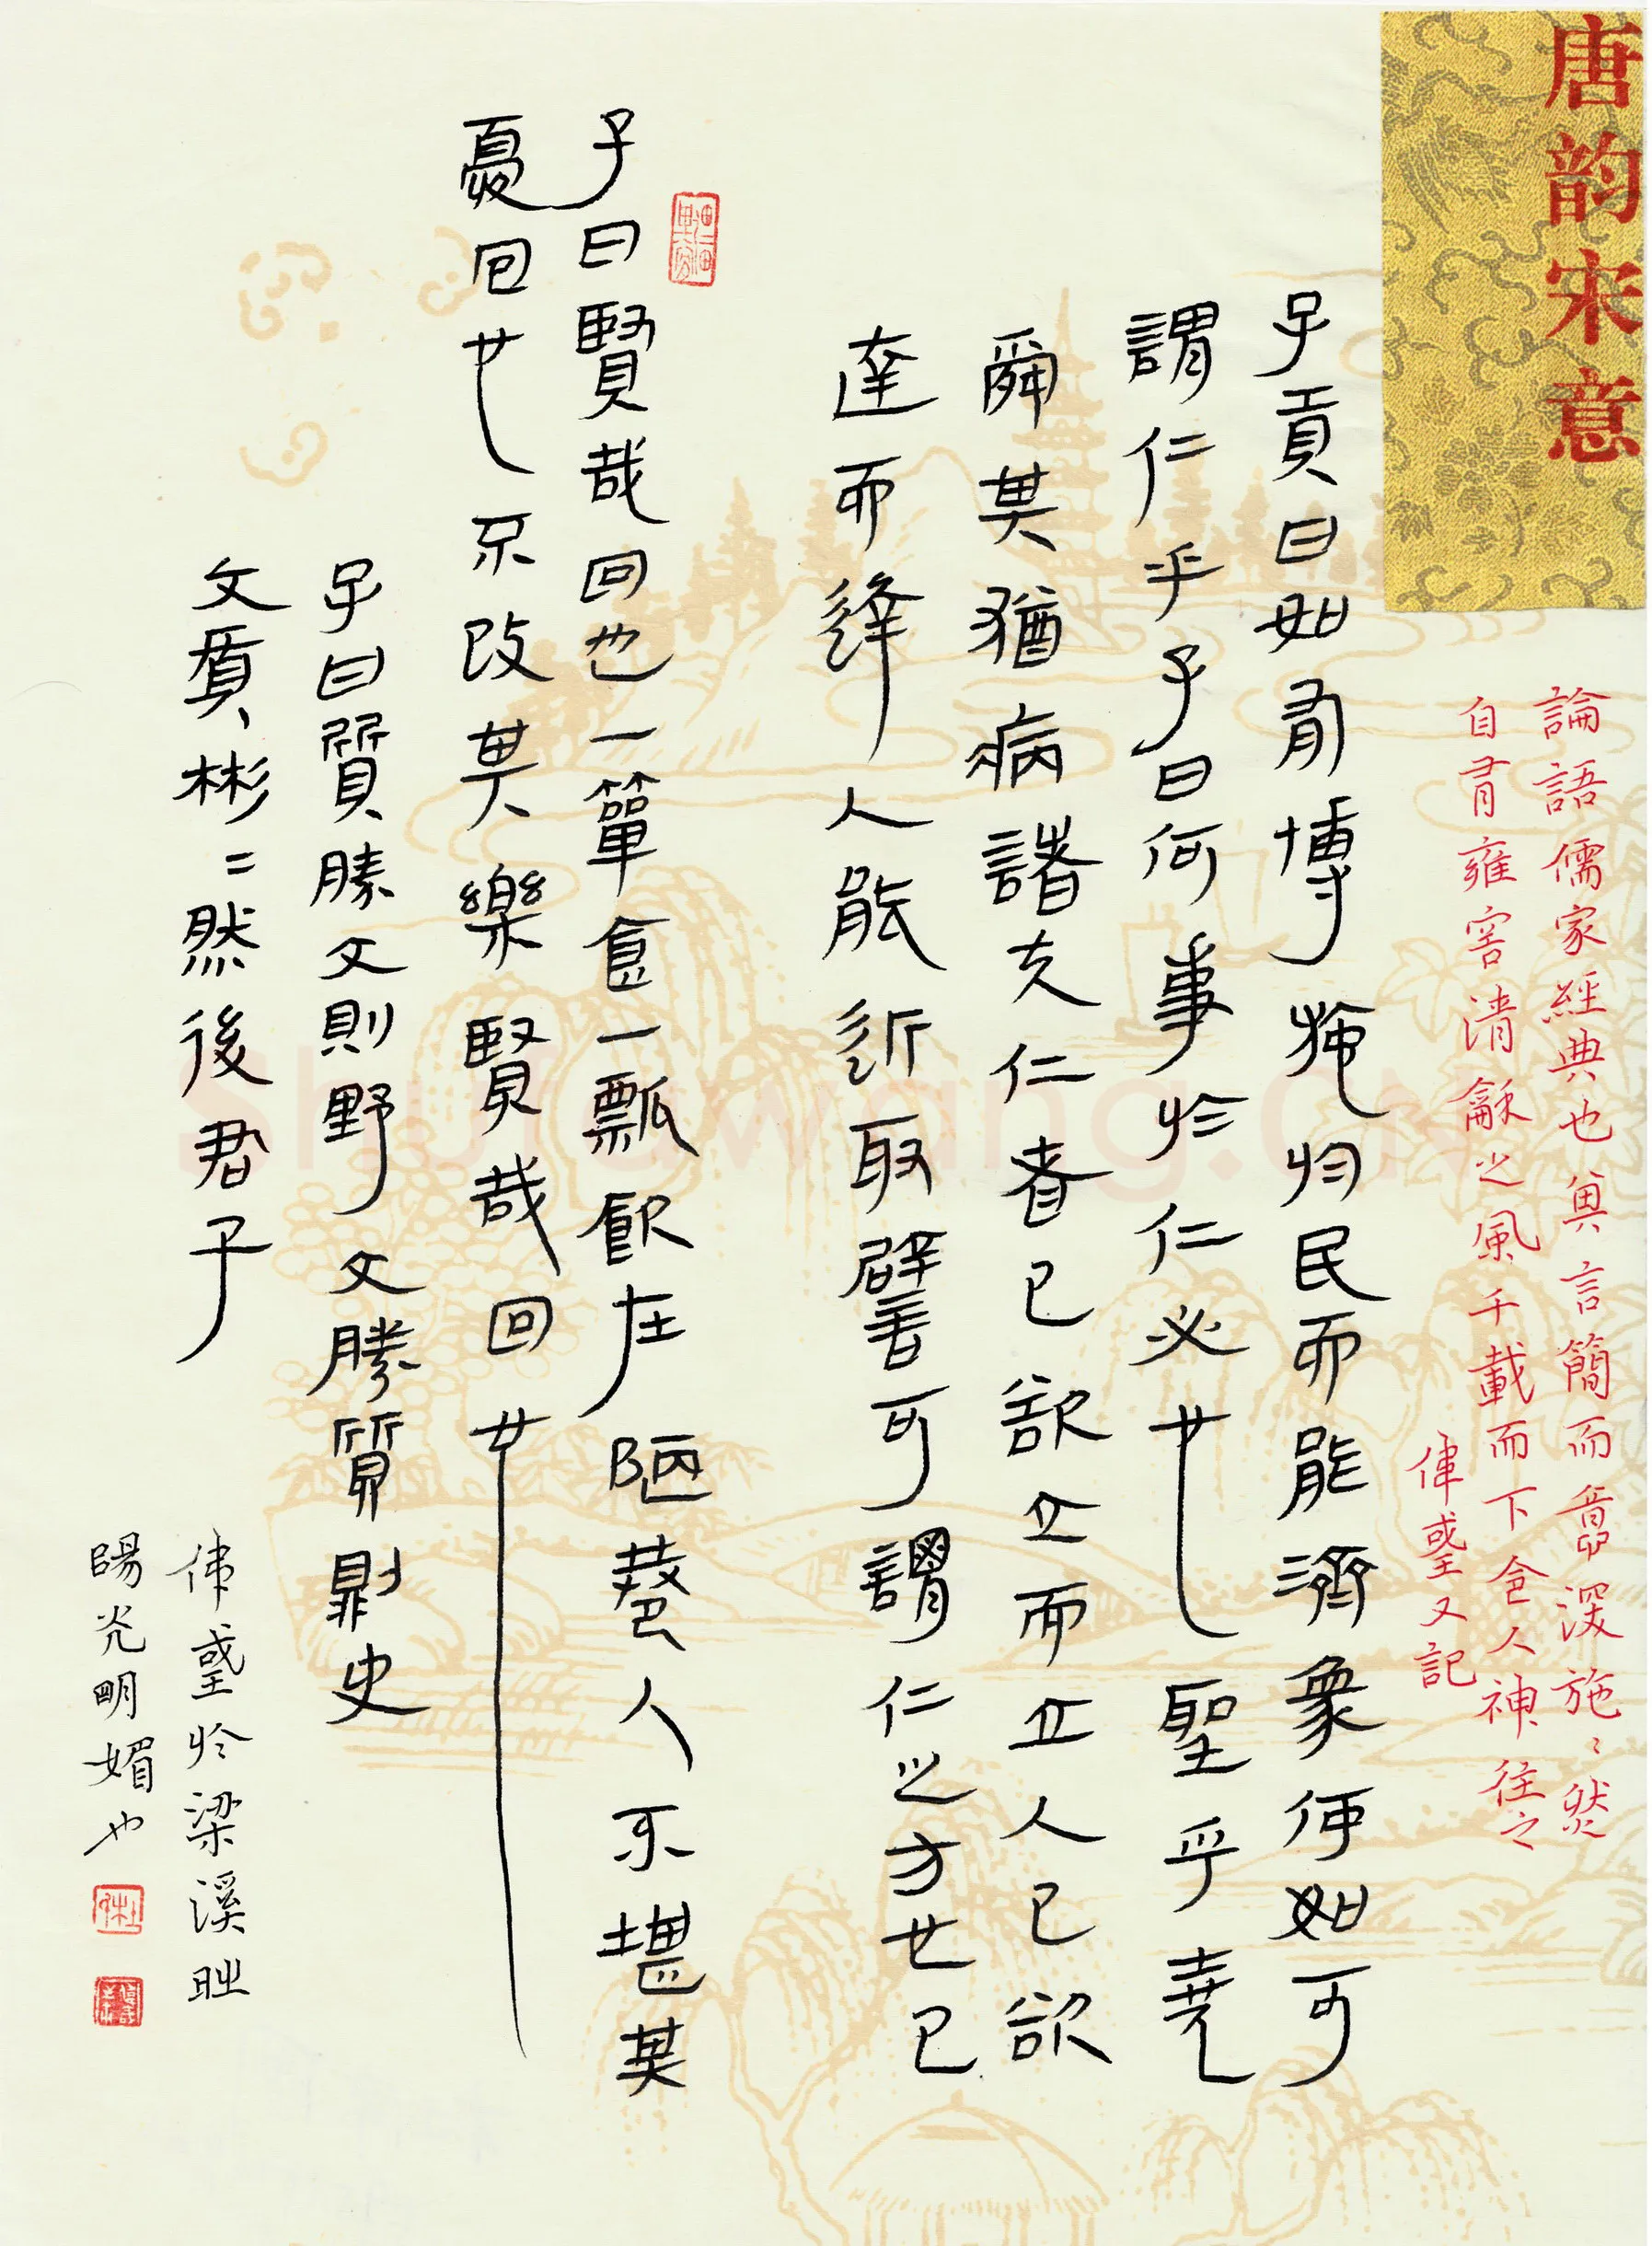 唐韵宋意
論語儒家經典也其言簡而意深施﹅然
自有雍容清龢之風千載而下令人神往之
偉□又記
子貢曰如有博施於民而能濟衆何如可
謂仁乎子曰何事於仁必也聖乎堯
舜其猶病諸夫仁者已欲立而立人已欲
達而達人能近取譬可謂仁之方也已
子曰賢哉回也一簞食一瓢飲在陋巷人不堪其
憂回也不改其樂賢哉回也
子曰質勝文則野文勝質則史
文質彬﹦然後君子
偉□於梁溪□
陽光明媚也